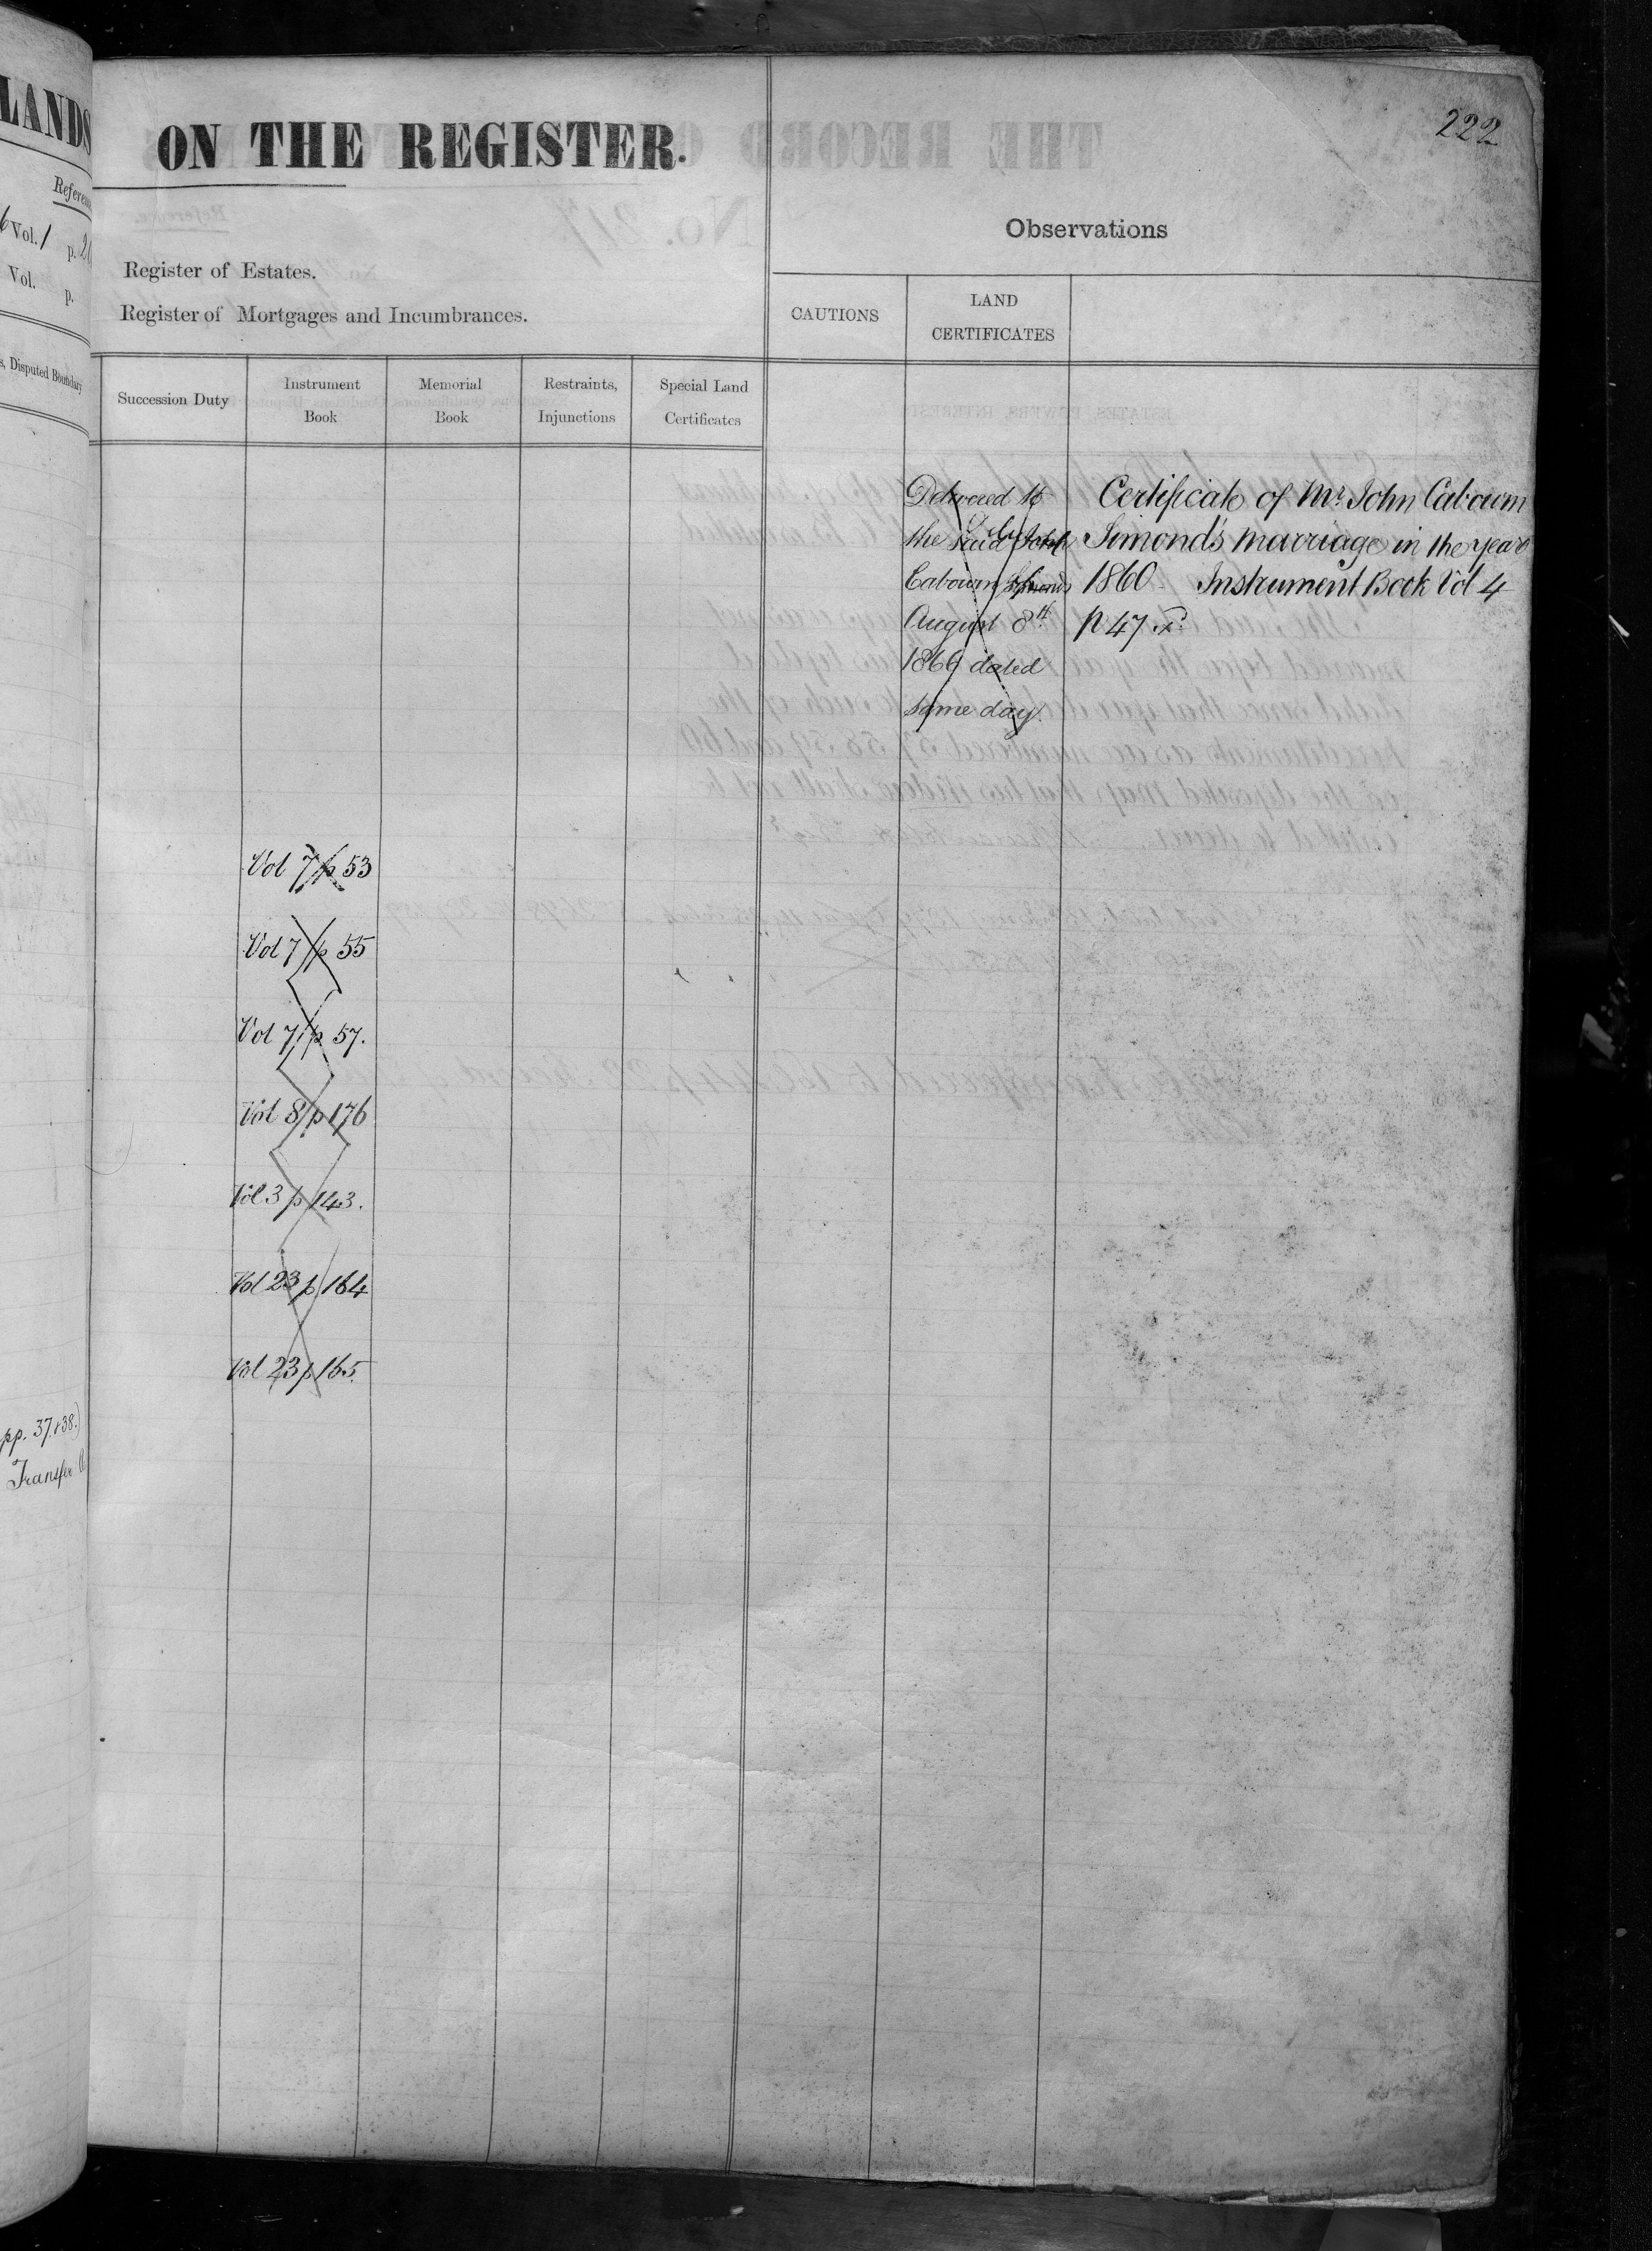 LANDS
Vol. 1 p.
Vol. p.
s, Disputed Boundary
pp. 37 & 38.)
Transfer
222
ON THE REGISTER.
Register of Estates.
Register of Mortgages and Incumbrances.
Observations
CAUTIONS
LAND CERTIFICATES
Succession Duty
Instrument Book
Memorial Book
Restraints, Injunctions
Special Land Certificates
Vol 7 p 53
Vol 7 p 55
Vol 7 p 57.
Vol 8 p 176
Vol 3 p 143.
Vol 23 p 164
Vol 23 p 165.
Delivered to
the said John
Cabourn Simonds
August 8th
1866 dated
same day.
Certificate of Mr. John Cabourn
Simond's marriage in the year
1860 - Instrument Book Vol 4
p 47